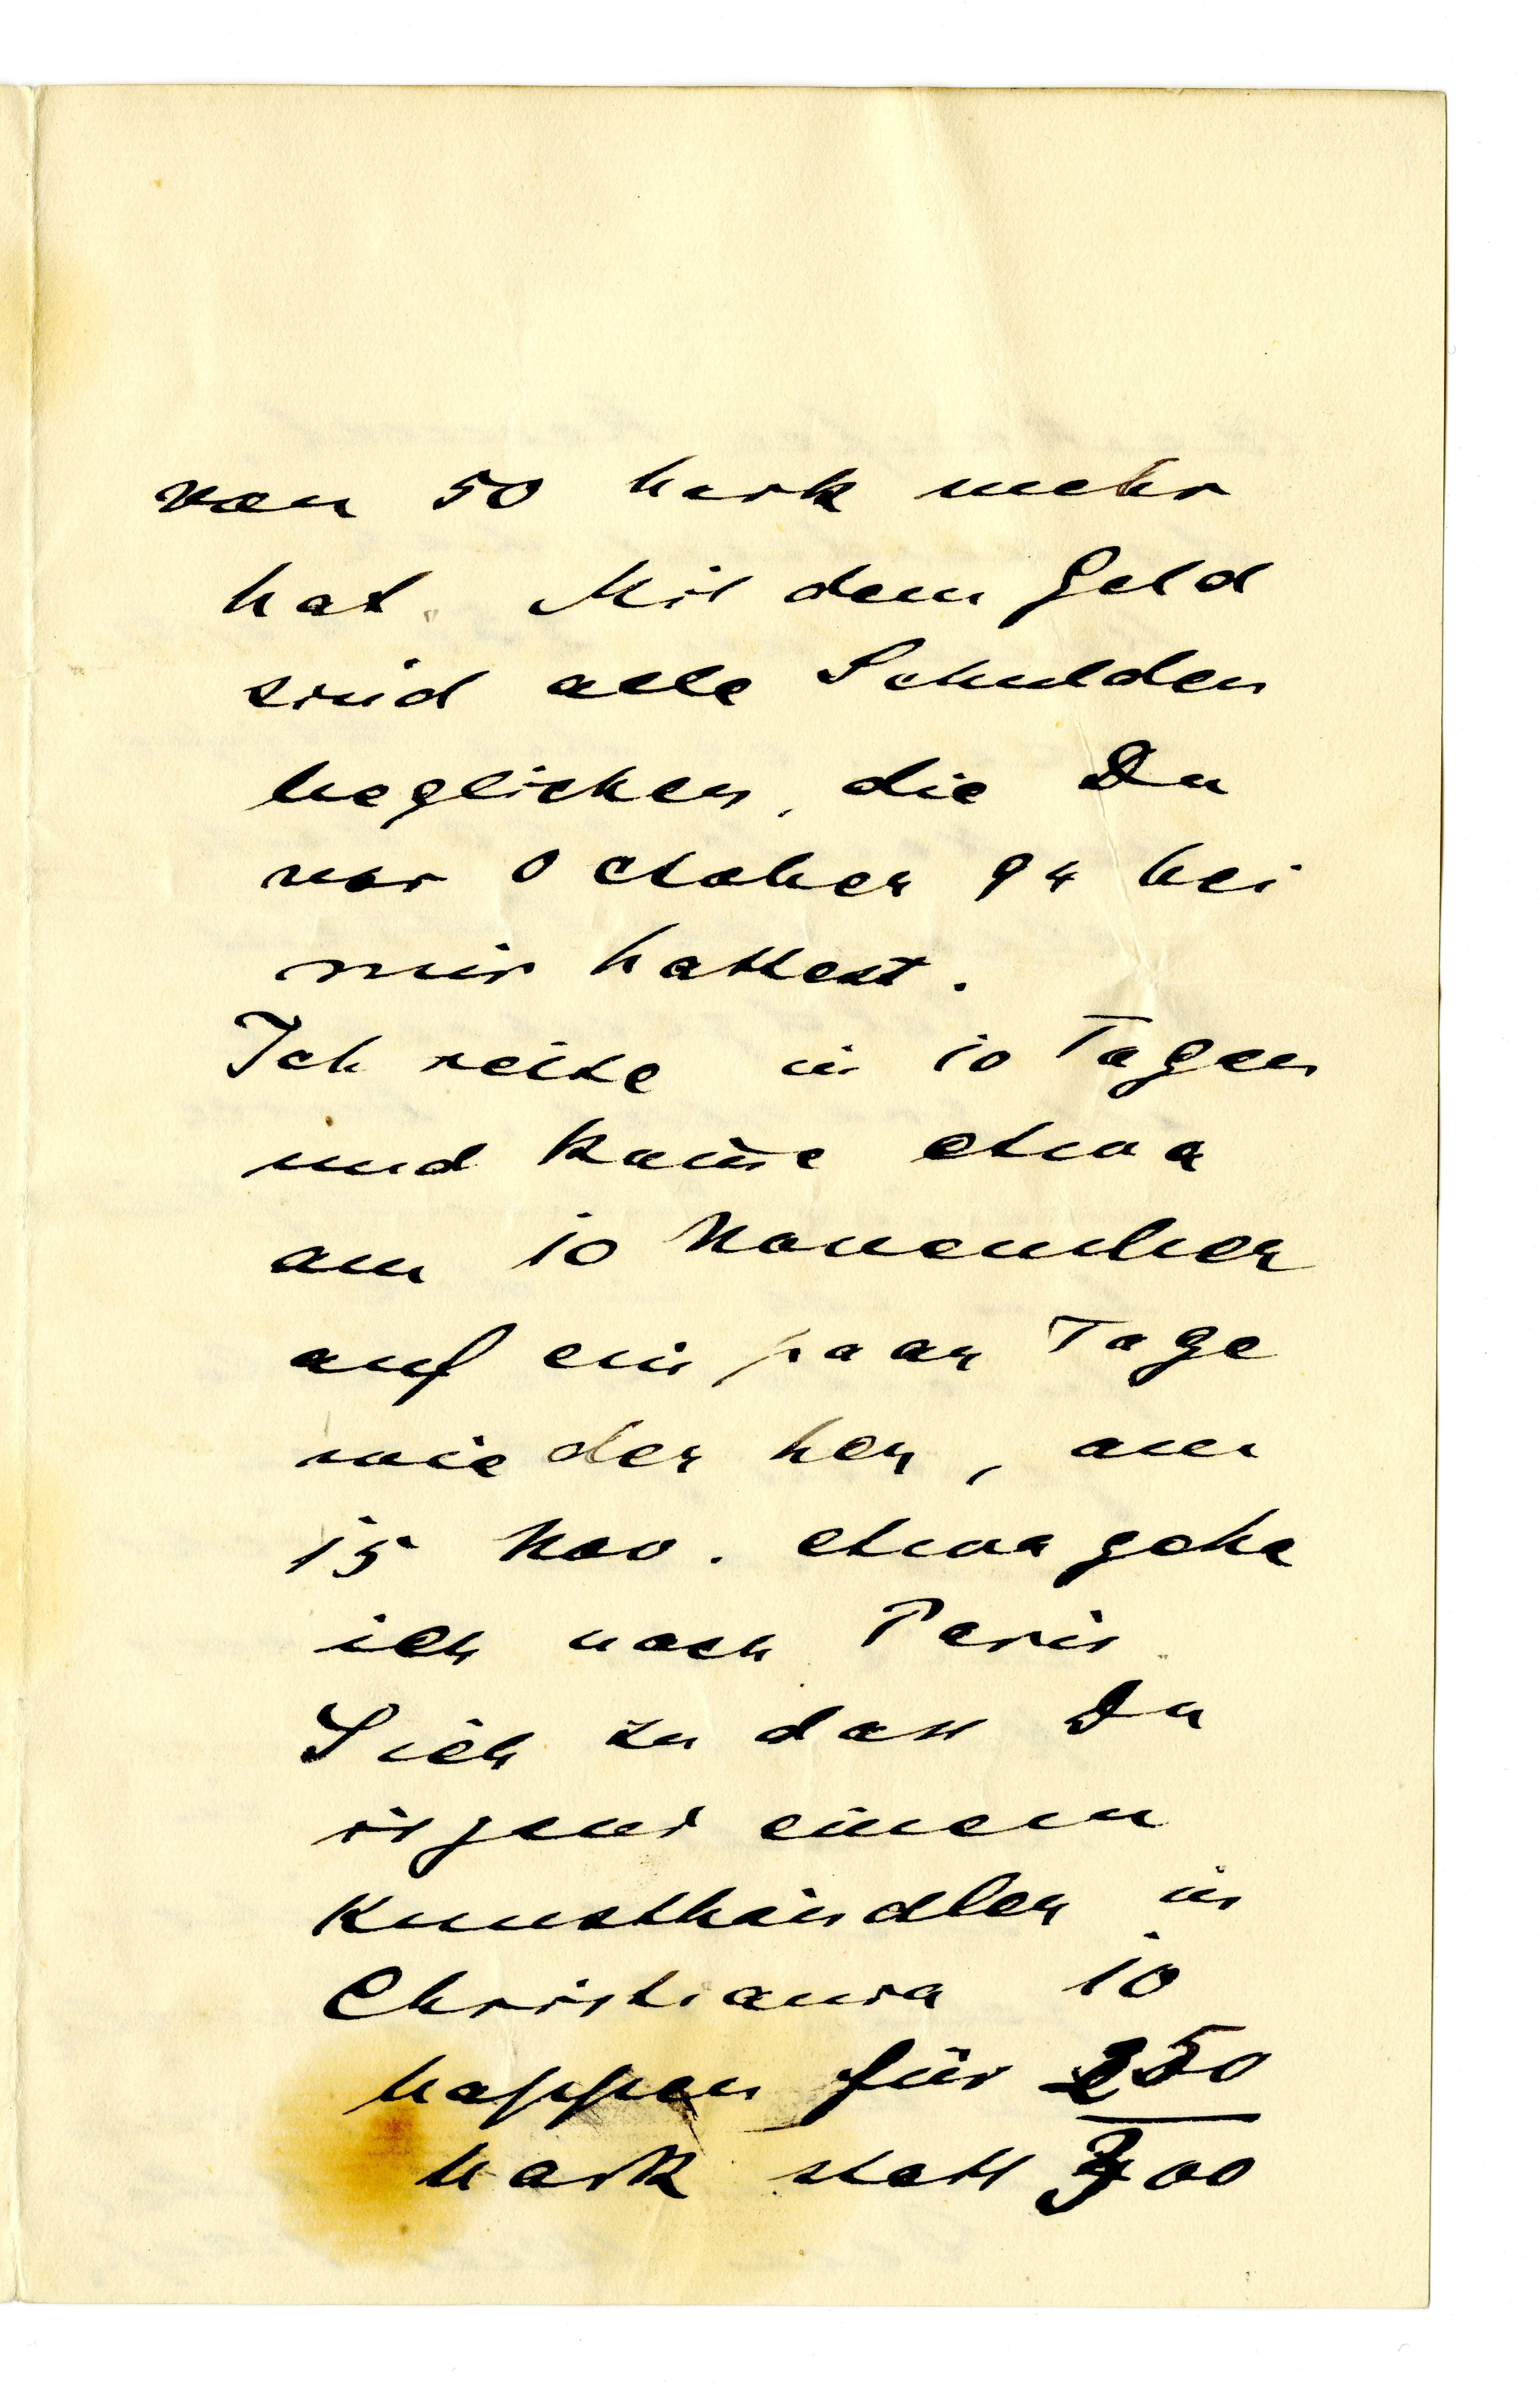 von 50 Mark mehr
hat. Mit dem Geld
sind alle Schulden
beglichen, die Du
vor October 94 bei
mir hattest.
Ich reise in 10 Tagen
und kom̅e etwa
am 10 November
auf ein paar Tage
wieder her, am
15 Nov. etwa gehe
ich nach Paris.
Sieh zu dass Du
irgend einem
Kunsthändler in
Christiania 10
Mappen für 250
Mark statt 300